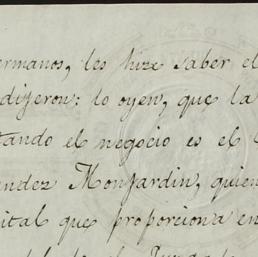 ermanos, les hize saber el
dijeron: lo oyen, que la
tando el negocio es el
endez Monjardin, quien
ital que proporciona en